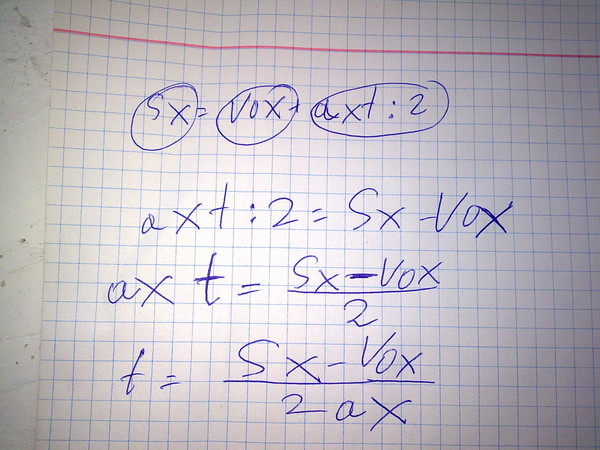 Sx = Vox + axt : 2
axt : 2 = Sx - Vox
ax t = Sx - Vox / 2
t = Sx - Vox / 2 ax